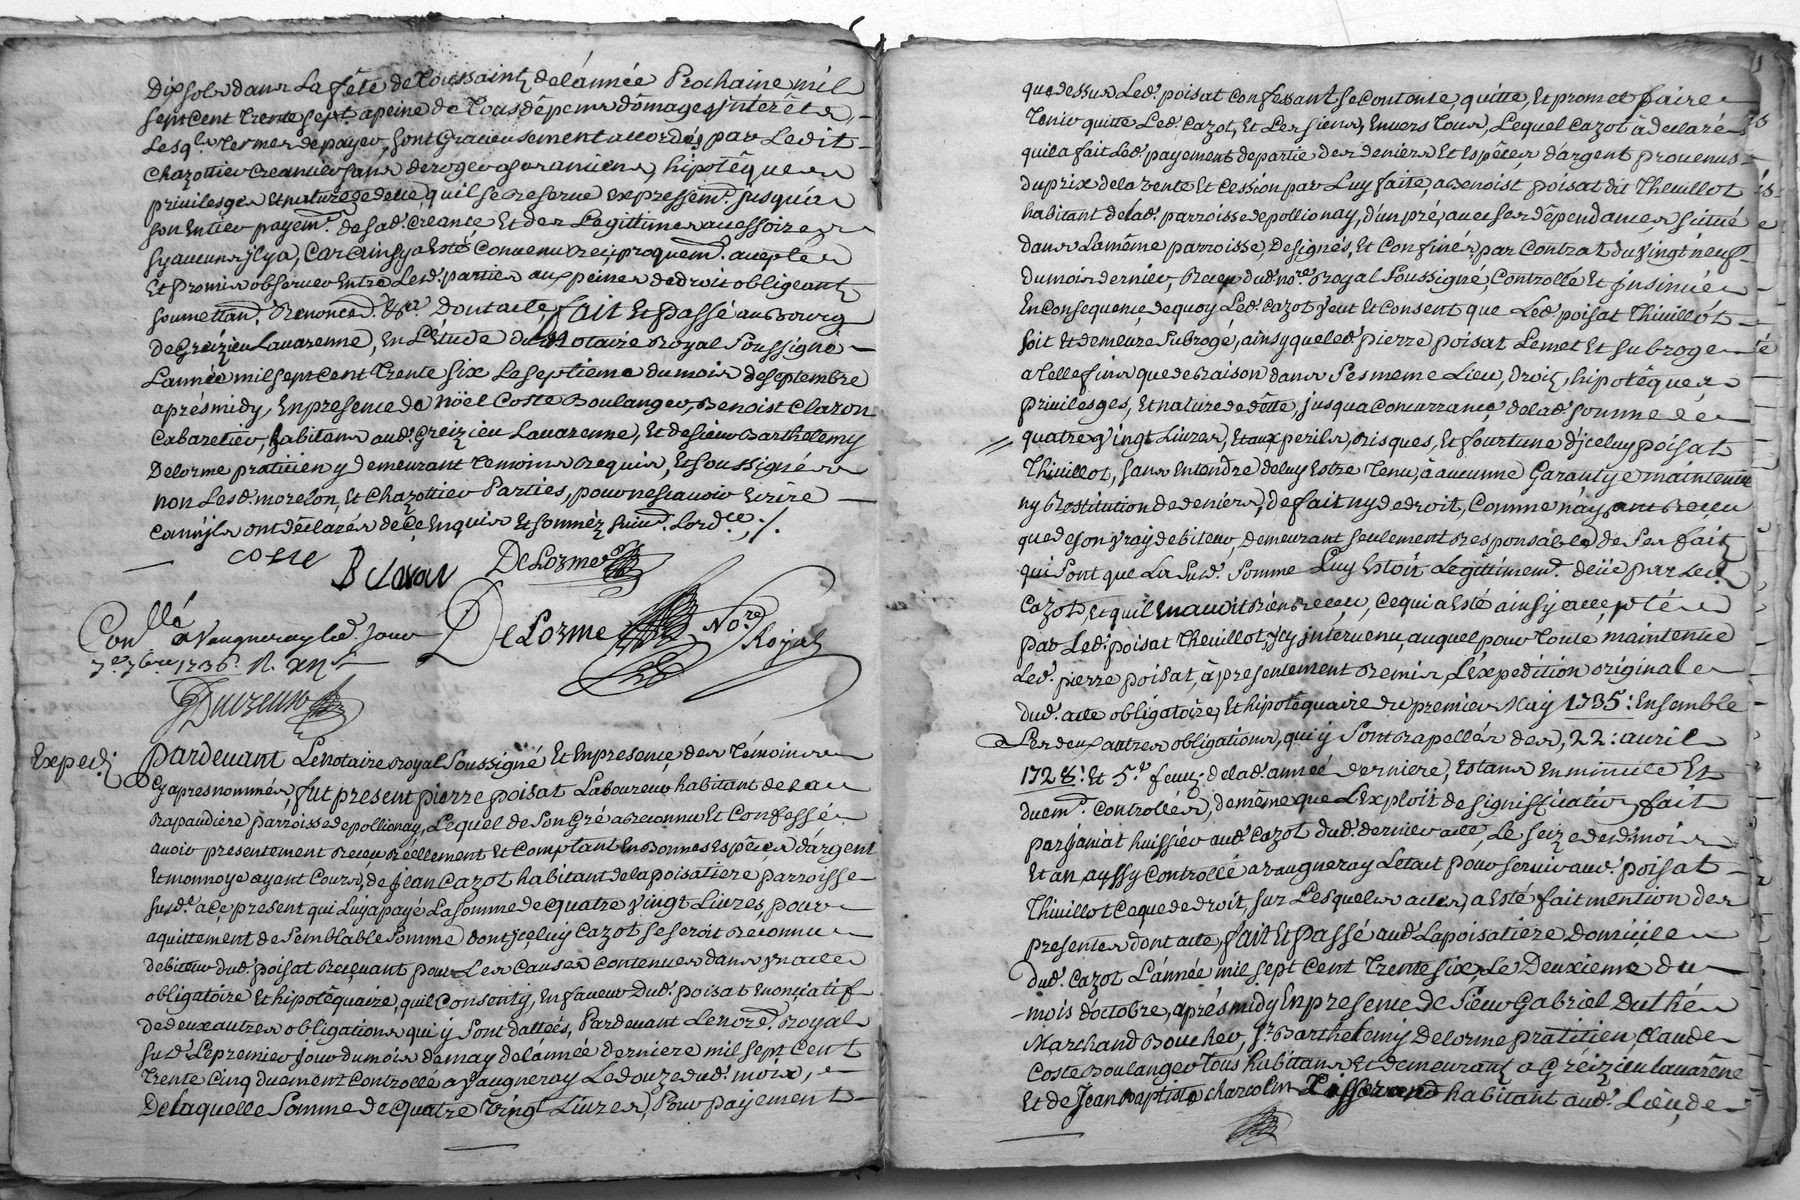 Dix sols dans La fête de Toussaint de l'année Prochaine mil
sept cent trente sept apeine de Tous dêpens dômages intérêts,
Lesq.ls termes de payer, sont Gracieusement accordés par Ledit
Chazottier Creancier sans deroger a ses anciens hipotêques
privileges et nature de dette qu'il se Reserve expressem.t jusqu'a
son Entier payem.t de sad.e Creance Et des Legittimes accessoires
sy aucuns il y a, Car Ainsy a Esté Convenu reciproquem.t accepté
Et Promis observer Entre Lesd.s parties aux peines de droit obligeant
soumettan.t Renoncan.t &c.a Dont acte, fait Et Passé au Bourg
de Greizieu Lavarenne, En L'Etude du d.t Notaire Royal Soussigné
L'année mil sept cent Trente six Le septieme du mois de septembre
aprés midy, En presence de Nöel Coste Boulanger, Benoist Claron
Cabaretier, habitans aud.t Greizieu Lavarenne, Et de sieur Barthelemy
Delorme praticien y demeurant temoins Requis, Et soussignés
non Lesd.s morelon, Et Chazottier Parties, pour ne sçavoir Ecrire
Comm'ils ont dêclarés de Ce Enquis Et sommêz suiv.t Lord.ce ./.
coste
B claron
DeLorme
DeLorme No.re Royal
Con.llé a Vaugneray led. jour
7.e 7.bre 1736. R.
Exped.
Pardevant Le Notaire Royal Soussigné Et En presence des Témoins
Cy apres nommés, fut present pierre poisat Laboureur habitant de La
Rapaudière Parroisse de pollionay, Lequel de son Gré a Reconnu Et Confessé
avoir presentement Receu Réellement Et Comptant En Bonnes Espêces d'argent
Et monnoye ayant Cours, de Jean Cazot habitant de la poisatiere parroisse
susd.e a Ce present qui Luy a payé La somme de quatre vingt Livres, pour
aquittement de Semblable Somme dont Iceluy Cazot se seroit Reconnu
debiteur dud.t poisat Recevant pour Les Causes Contenues dans un acte
obligatoire Et hipotêquaire, qu'il Consentij, En faveur Dud.t poisat Enonciatif
de deux autres obligations qui ÿ Sont dattées, Pardevant Le no.re Royal
susd.t Le premier jour du mois de may de L'année derniere mil sept cent
Trente Cinq duement Controllé a Vaugneray Le douze dud.t mois,
De laquelle Somme de Quatre Vingt Livres, Pour payement
que dessus Led.t poisat Confessant se Contente, quitte, Et promet faire
Tenir quitte Led.t Cazot, Et Les siens, Envers Tous, Lequel Cazot â declaré
qu'il a fait Led.t payement de partie des deniers Et Espêces d'argent provenus
du prix de la vente Et Cession par Luy faite, a Benoist poisat dit Thivillot
habitant de lad.e parroisse de pollionay, d'un pré, avec ses dépendances situé
dans La même parroisse, Designés, Et Confinés par Contrat du vingt neuf
du mois dernier, Receu dud.t no.re Royal Soussigné, Controllé Et Insinué
En Consequence de quoy Led.t Cazot veut Et Consent que Led.t poisat Thivillot
soit Et demeure Subrogé, ainsy que led.t pierre poisat Le met Et subroge
a telle fins que de Raison dans Ses meme Lieu, Droit, hipotêques
privileges, Et nature de dette, jusqu'a Concurrance de lad.e somme de
quatre vingt Livres, Et aux perils, risques, Et fourtune d'Iceluy poisat
Thivillot, sans Entendre de luy Estre Tenu, â aucunne Garantye maintenüe
ny Restitution de deniers, de fait ny de droit, Comme n'ayant Receu
que de son vray debiteur, demeurant seulement Responsable de Ses faits
qui Sont que La Susd.e Somme Luy Estoit Legittimem.t deüe par Led.t
Cazot, Et qu'il En avoit Rien Receu, Ce qui a Esté ainsÿ accepté
par Led.t poisat Thivillot, Icy intervenu, auquel pour Toute maintenüe
Led.t pierre poisat, à presentement Remis, L'Expedition originale
dud.t acte obligatoire, Et hipotêquaire du premier May 1735: Ensemble
Les deux autres obligations, qui ÿ Sont Rapellés des, 22: avril
1728: Et 5.e fevr.: de lad.e année derniere, Estans En minute Et
duem.t Controllés, de même que L'Exploit de Signiffication fait
par Janiat huissier aud.t Cazot dud.t dernier acte, Le seize desd. mois
Et an, aussy Controllé a vaugneray Le tout pour servir aud.t poisat
Thivillot Ce que de droit, sur Lesquels actes, a Esté fait mention des
presentes dont acte, fait Et Passé aud.t La poisatière Domicile
dud.t Cazot L'année mil sept Cent Trente six Le Deuxieme du
mois d'octobre, aprés midy En presence de Sieur Gabriel Duthé
Marchand Boucher, S.r Barthelemy Delorme Praticien, Claude
Coste Boulanger Tous habitans Et demeurant a Greizieu Lavarêne
Et de Jean Baptiste charcolin Tisserand habitant aud.t Lieu de